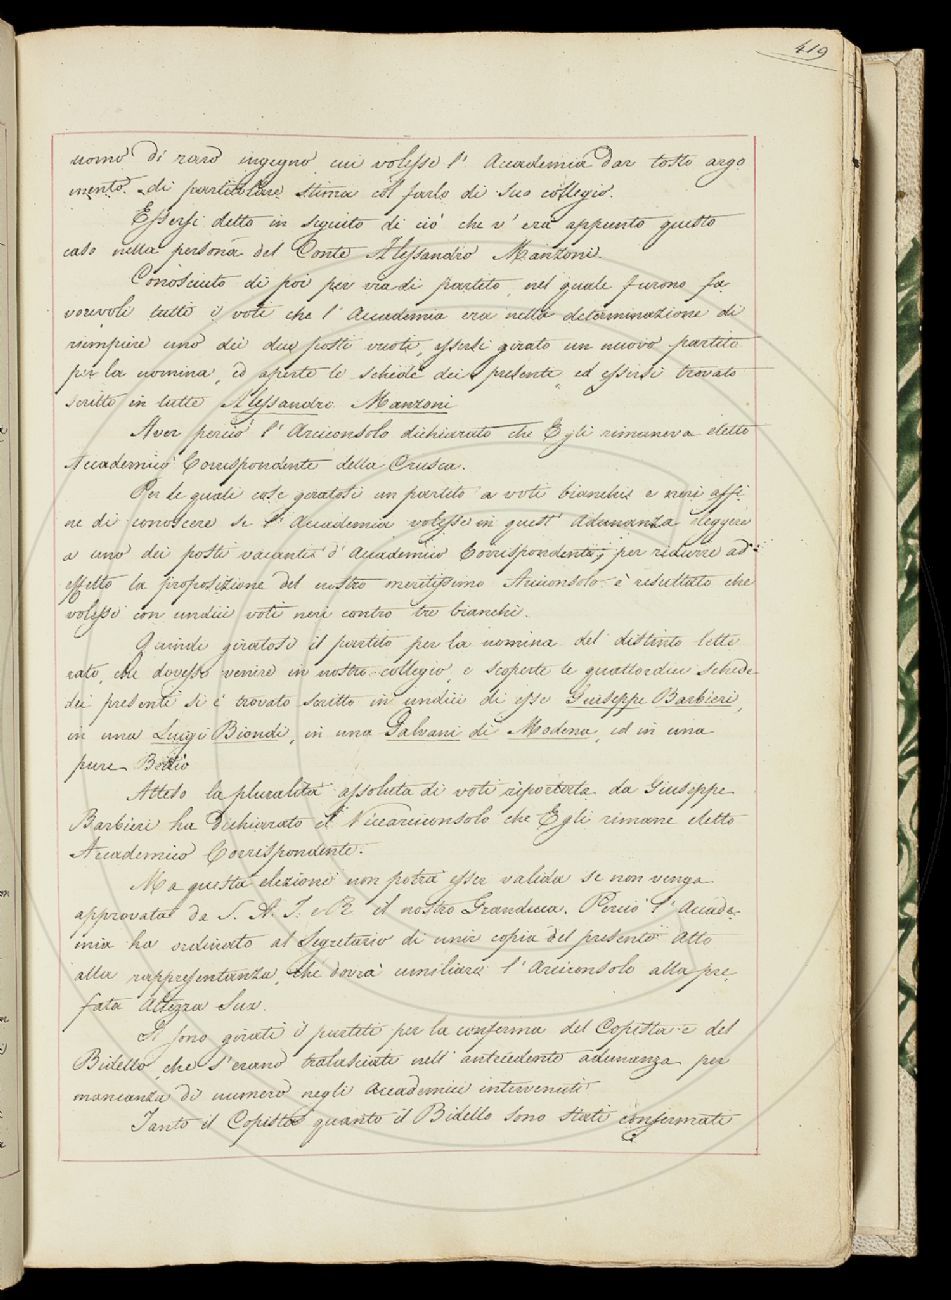 419
uomo di raro ingegno cui volesse l' Accademia dar tosto argo
mento di particolare stima col farlo di suo collegio.
Essersi detto in seguito di ciò che v' era appunto questo
caso nella persona del Conte Alessandro Manzoni.
Conosciuto di poi per via di partito, nel quale furono fa
vorevoli tutti i voti che l' Accademia era nella determinazione di
riempire uno dei due posti vuoti, essersi girato un nuovo partito
per la nomina, ed aperte le schede dei presenti ed essersi trovato
scritto in tutte Alessandro Manzoni
Aver perciò l' Arciconsolo dichiarato che Egli rimaneva eletto
Accademico Corrispondente della Crusca.
Per le quali cose giratosi un partito a voti bianchi e neri affi
ne di conoscere se l' Accademia volesse in quest' Adunanza eleggere
a uno dei posti vacanti d' Accademico Corrispondente; per ridurre ad
effetto la proposizione del nostro meritissimo Arciconsolo è resultato che
volesse con undici voti neri contro tre bianchi.
Quindi giratosi il partito per la nomina del distinto lette
rato, che dovesse venire in nostro collegio, e scoperte le quattordici schede
dei presenti si è trovato scritto in undici di esse Giuseppe Barbieri,
in una Luigi Biondi, in una Galvani di Modena, ed in una
pure
Atteso la pluralità assoluta di voti riportata da Giuseppe
Barbieri ha dichiarato il Vicearciconsolo che Egli rimane eletto
Accademico Corrispondente.
Ma questa elezione non potrà esser valida se non venga
approvata da S. A. I. e R. il nostro Granduca. Perciò l' Accade-
mia ha ordinato al Segretario di unir copia del presente Atto
alla rappresentanza, che dovrà umiliare l' Arciconsolo alla pre
fata Altezza Sua.
Si sono girati i partiti per la conferma del Copista e del
Bidello, che s' erano tralasciati nell' antecedente adunanza per
mancanza di numero negli Accademici intervenuti
Tanto il Copista quanto il Bidello sono stati confermati